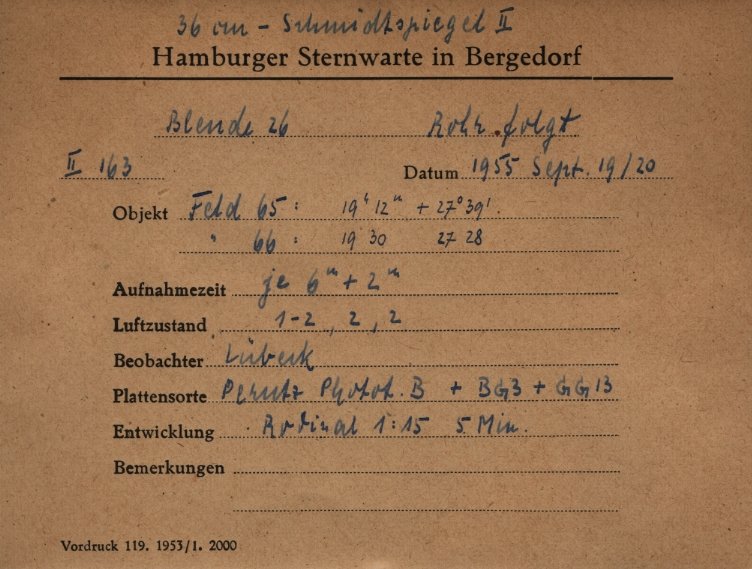 36 cm - Schmidtspiegel II
Hamburger Sternwarte in Bergedorf
Blende 26 Rohr folgt
II 163 Datum 1955 Sept. 19/20
Objekt Feld 65 : 19h 12m + 27° 39'
" 66 : 19 30 27 28
Aufnahmezeit je 6m + 2m
Luftzustand 1-2, 2, 2
Beobachter Lübeck
Plattensorte Perutz Photot. B + BG3 + GG13
Entwicklung Rodinal 1:15 5 Min.
Bemerkungen
Vordruck 119. 1953/1. 2000